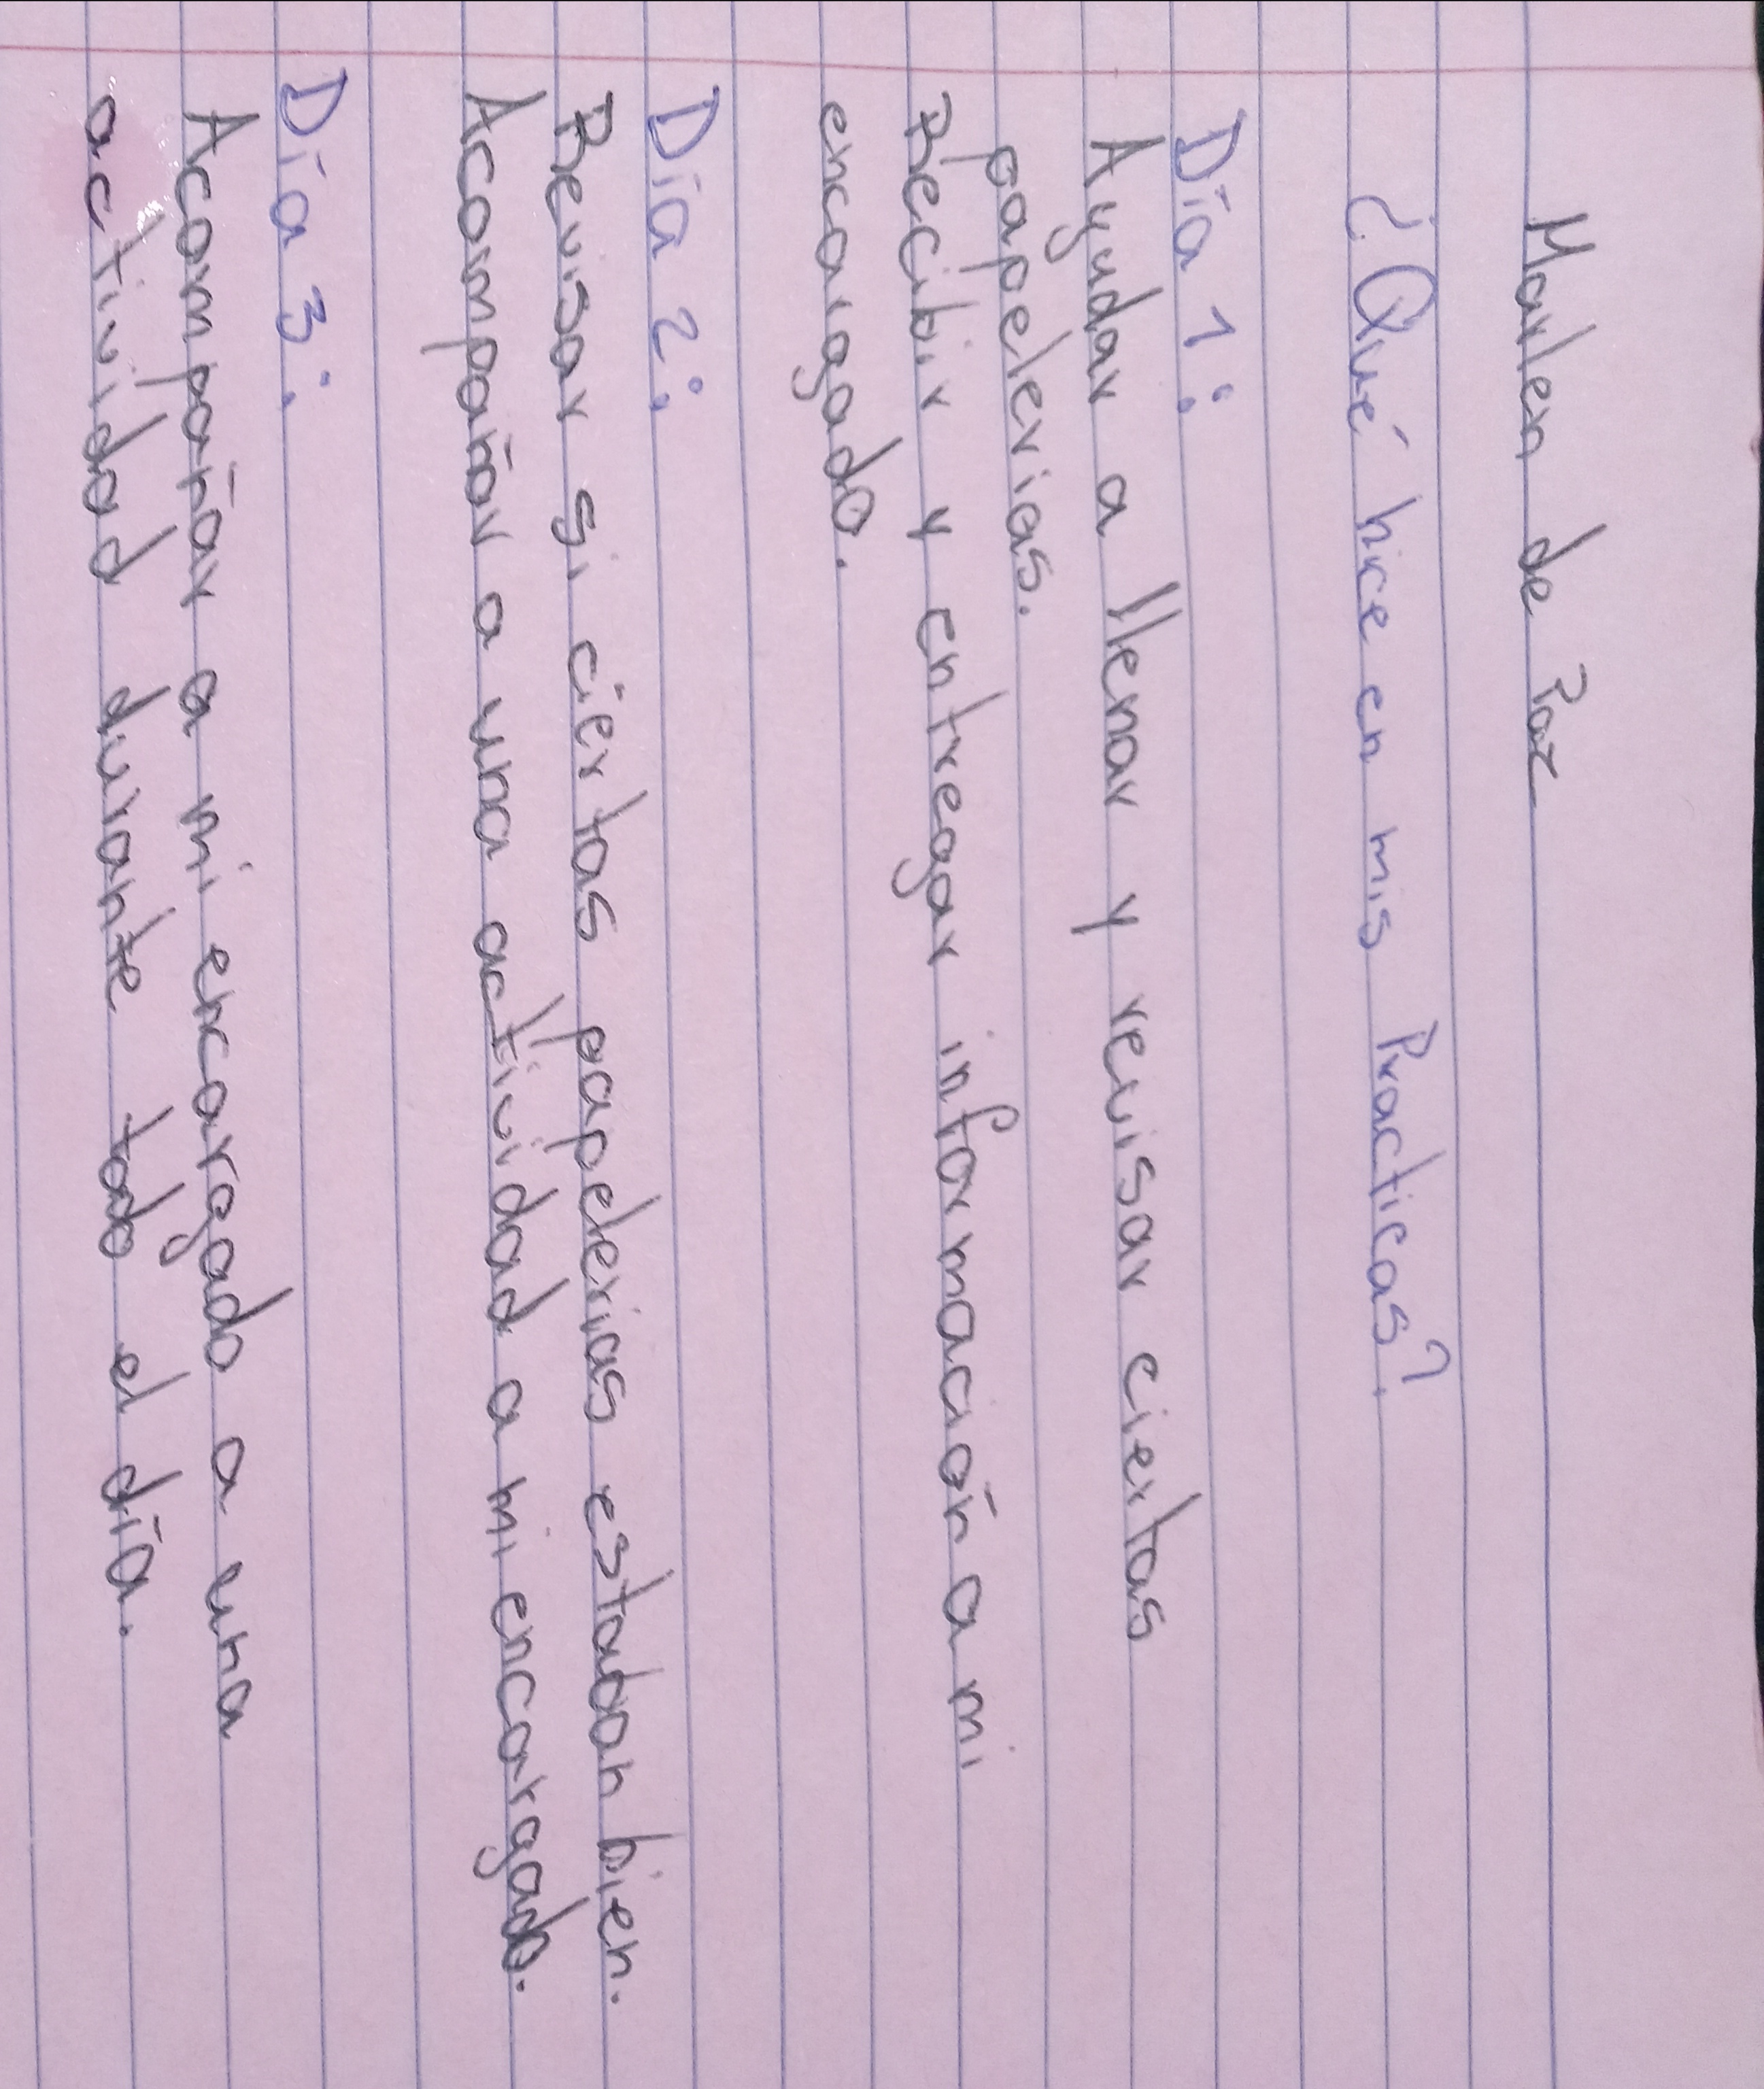 Marlen de Paz
¿Qué hice en mis Practicas?
Día 1:
Ayudar a llenar y revisar ciertas
papelerias.
Recibir y entregar información a mi
encargado.
Día 2:
Revisar si ciertas papelerias estaban bien.
Acompañar a una actividad a mi encargado.
Día 3:
Acompañar a mi encargado a una
actividad durante todo el día.